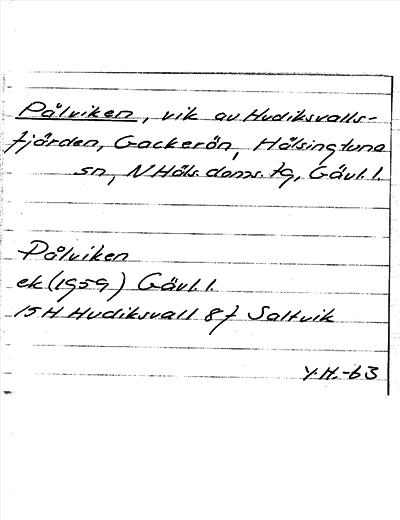 Pålviken, vik av Hudiksvalls-
fjärden, Gackerön, Hälsingtuna
sn, N Häls. doms. tg, Gävl. l.
Pålviken
ek (1959) Gävl. l.
15H Hudiksvall 8f Saltvik
Y.H.-63